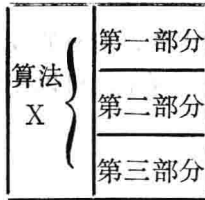 算法
X
第一部分
第二部分
第三部分